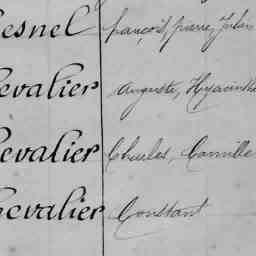 esnel François, Pierre, Julien
evalier Auguste, Hyacinthe
evalier Charles, Camille
hevalier Constant